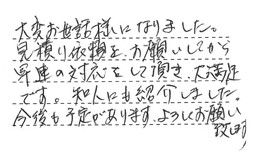 大変お世話様になりました。
見積り依頼を、お願いしてから
早速の対応をして頂き、大満足
です。知人にも紹介しました。
今後も予定があります。よろしくお願い
致します